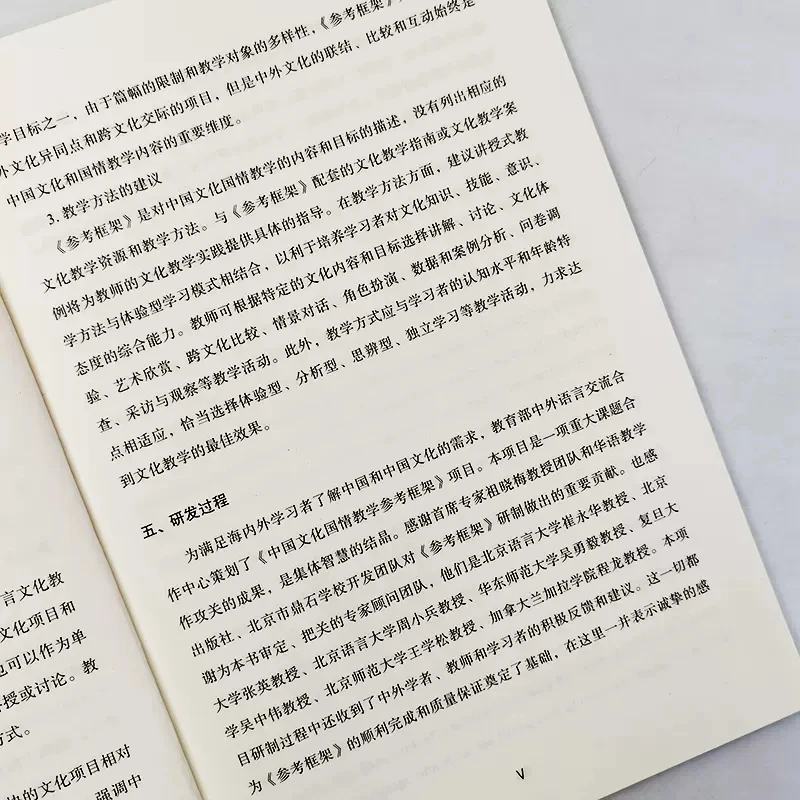 言文化教
文化项目和
也可以作为单
授或讨论。教
方式。
的文化项目相对
强调中
学目标之一，由于篇幅的限制和教学对象的多样性，《参考框架》
外文化异同点和跨文化交际的项目，但是中外文化的联结、比较和互动始终是
中国文化和国情教学内容的重要维度。
3. 教学方法的建议
《参考框架》是对中国文化国情教学的内容和目标的描述，没有列出相应的
文化教学资源和教学方法。与《参考框架》配套的文化教学指南或文化教学案
例将为教师的文化教学实践提供具体的指导。在教学方法方面，建议讲授式教
学方法与体验型学习模式相结合，以利于培养学习者对文化知识、技能、意识、
态度的综合能力。教师可根据特定的文化内容和目标选择讲解、讨论、文化体
验、艺术欣赏、跨文化比较、情景对话、角色扮演、数据和案例分析、问卷调
查、采访与观察等教学活动。此外，教学方式应与学习者的认知水平和年龄特
点相适应，恰当选择体验型、分析型、思辨型、独立学习等教学活动，力求达
到文化教学的最佳效果。
五、研发过程
为满足海内外学习者了解中国和中国文化的需求，教育部中外语言交流合
作中心策划了《中国文化国情教学参考框架》项目。本项目是一项重大课题合
作攻关的成果，是集体智慧的结晶。感谢首席专家祖晓梅教授团队和华语教学
出版社、北京市鼎石学校开发团队对《参考框架》研制做出的重要贡献。也感
谢为本书审定、把关的专家顾问团队，他们是北京语言大学崔永华教授、北京
大学张英教授、北京语言大学周小兵教授、华东师范大学吴勇毅教授、复旦大
学吴中伟教授、北京师范大学王学松教授、加拿大兰加拉学院程龙教授。本项
目研制过程中还收到了中外学者、教师和学习者的积极反馈和建议。这一切都
为《参考框架》的顺利完成和质量保证奠定了基础，在这里一并表示诚挚的感
V